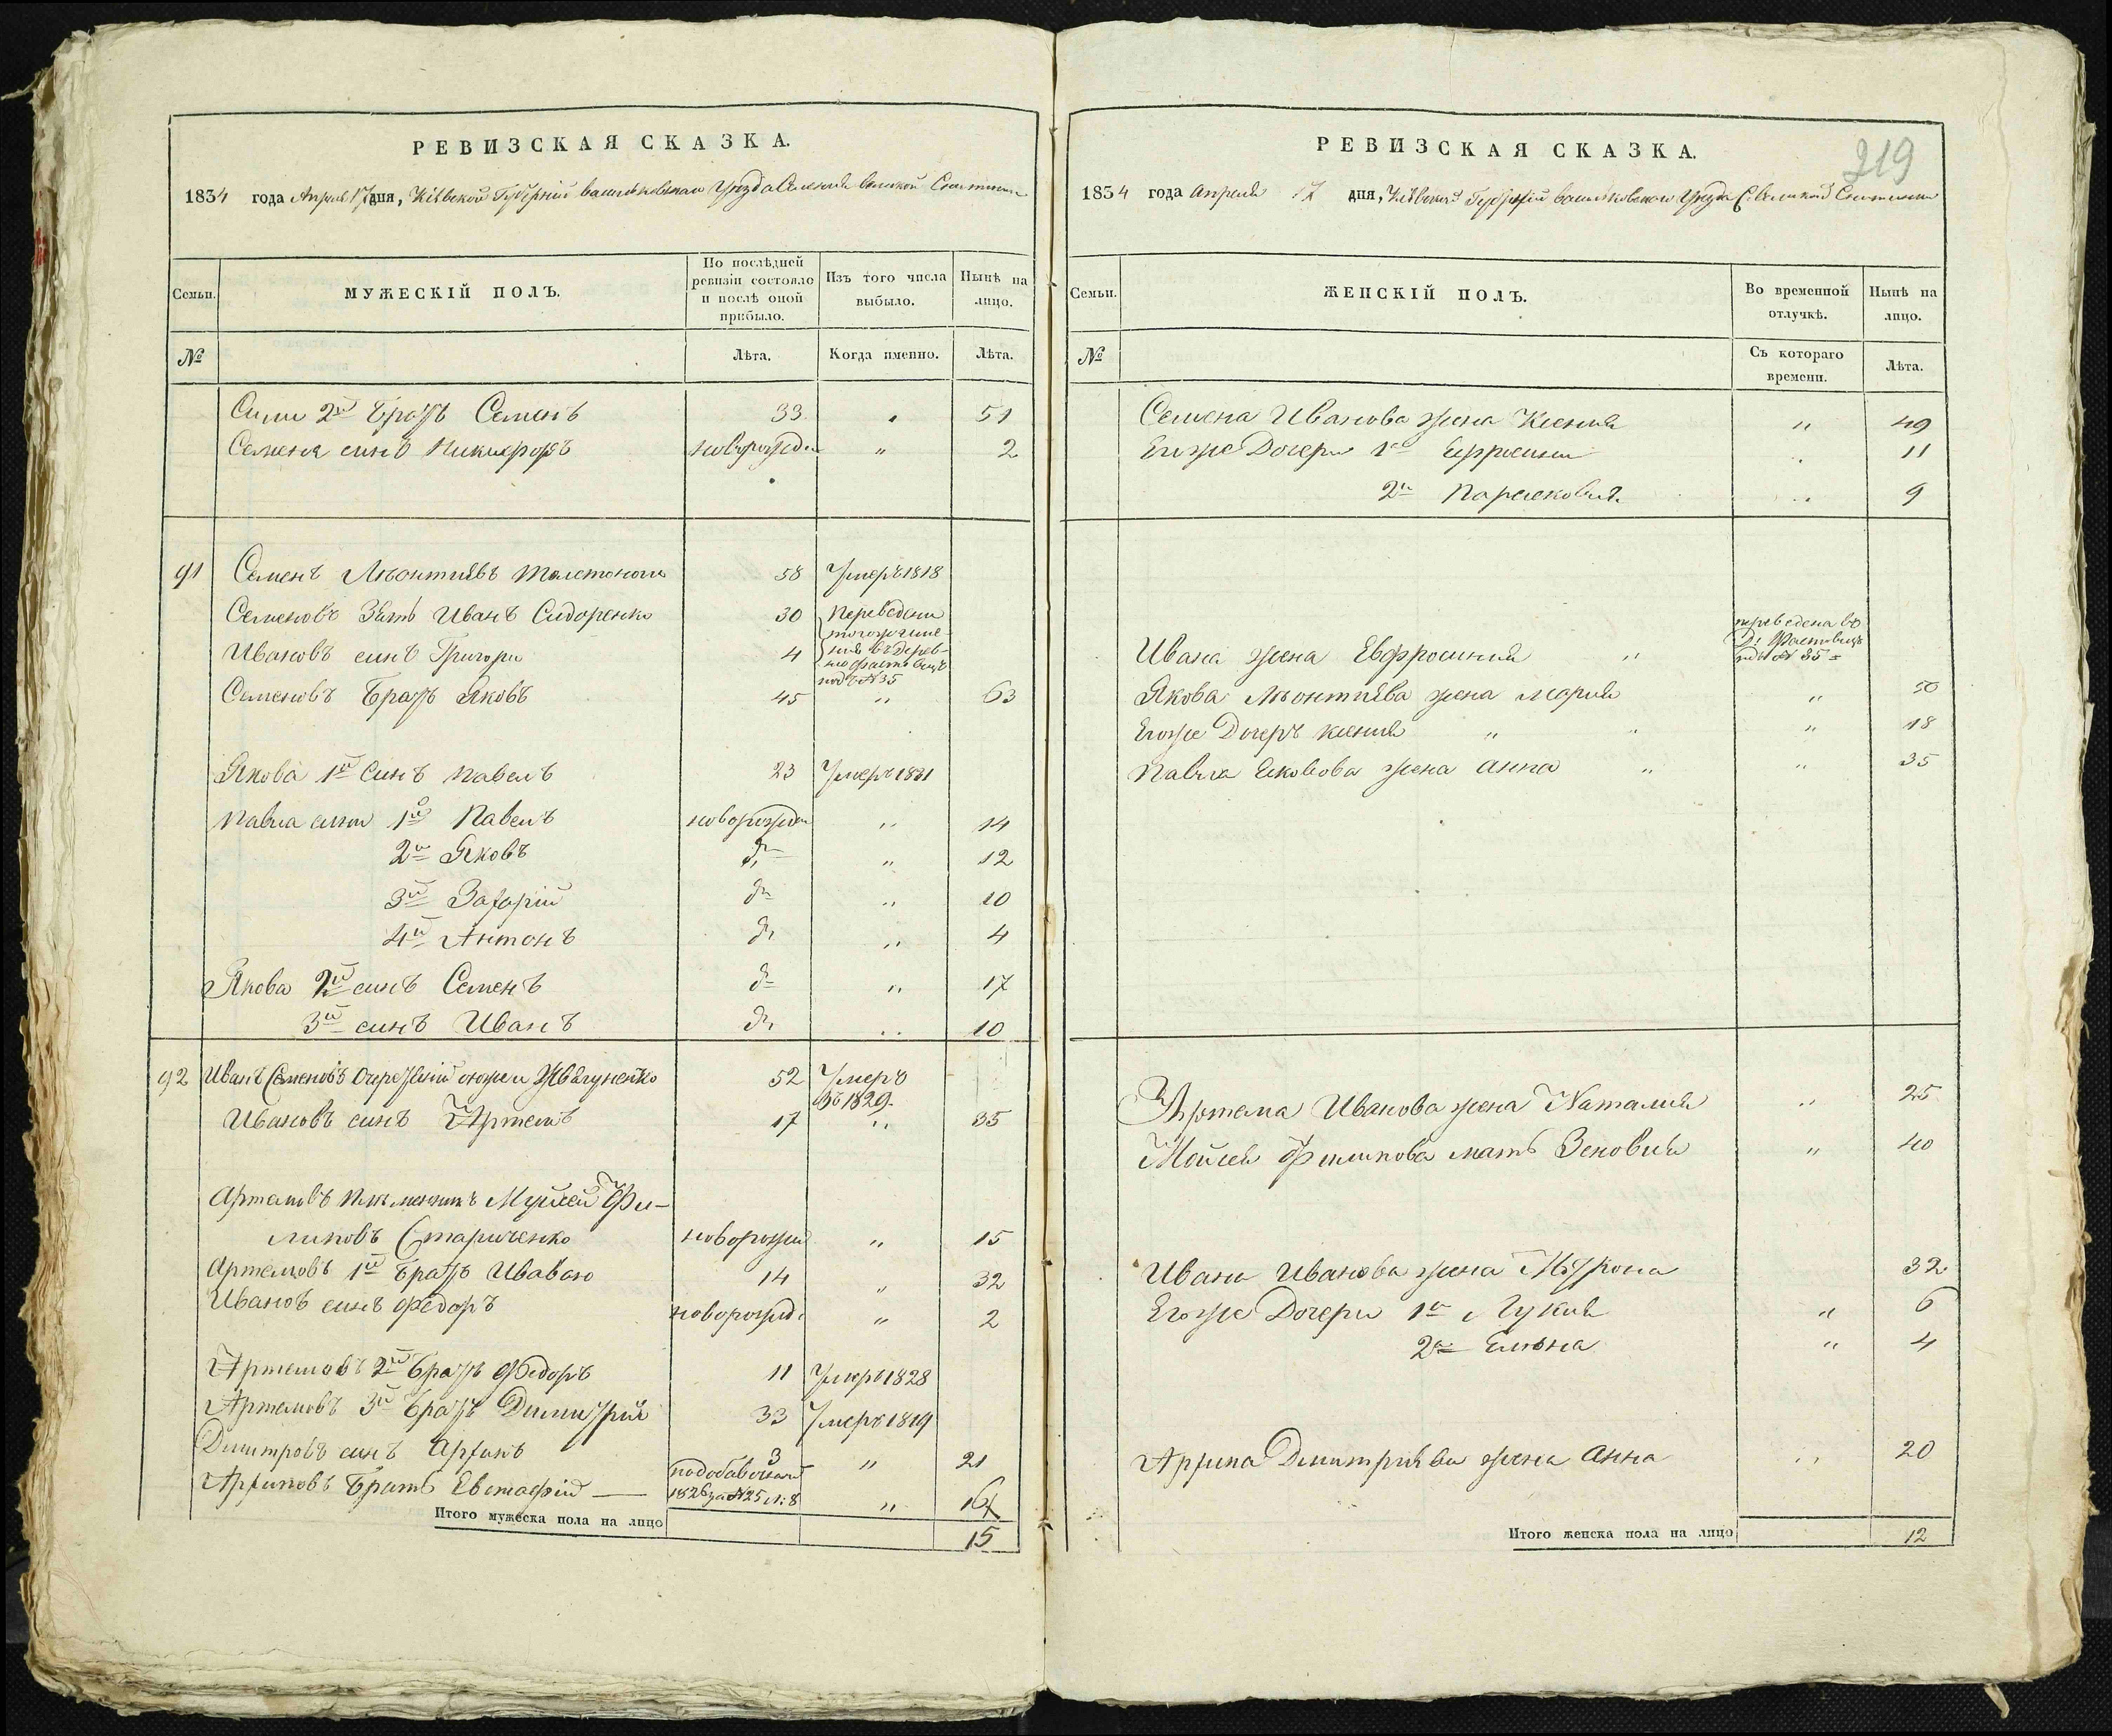 РЕВИЗСКАЯ СКАЗКА.
1834 года Апреля 17 дня, Кіевской Губерніи васильковскаго Уезда Селенія великой Снитинки
Семьи.
МУЖЕСКІЙ ПОЛЪ.
По послѣдней ревизіи состояло и послѣ оной прибыло.
Изъ того числа выбыло.
Нынѣ на лицо.
№
Лѣта.
Когда именно.
Лѣта.
2й братъ Семенъ 33 " 51
Семена синъ Никифоръ новорожден " 2
91 Семенъ Лѣонтиевъ 58 Умеръ 1818
Семеновъ Зять Иванъ Сидоренко 30 Переведени
Ивановъ синъ Григори 4
тогожъ име-
нія въ дерев-
ню фастовецъ
подъ №35
Семеновъ братъ Яковъ 45 " 63
Якова 1й Синъ павелъ 23 Умеръ 1831
Павла сини 1й Павелъ новорожден " 14
2й Яковъ дт " 12
3й Захарій дт " 10
4й Антонъ дт " 4
Якова 2й синъ Семенъ дт " 17
3й синъ Иванъ дт " 10
92 Иванъ Семеновъ онже и 52 Умеръ
въ 1829.
Ивановъ синъ Артемъ 17 " 35
Артемовъ Племенникъ Муйсей Фи-
липовъ Стариченко новорожден " 15
Артемовъ 1й братъ Иванъ 14 " 32
Ивановъ синъ Федоръ новорожд. " 2
Артемовъ 2й братъ Федоръ 11 Умеръ 1828
Артемовъ 3й братъ Димитрій 33 Умеръ 1819
Дмитровъ синъ Архипъ 3 " 21
Архиповъ Братъ Евстафій — подобавочной
1826 за №25 л: 8 " 16
Итого мужеска пола на лицо 15
219
РЕВИЗСКАЯ СКАЗКА.
1834 года апреля 17 дня, Кіевской Губерніи васильковскаго Уезда С. великой Снитинки
Семьи.
ЖЕНСКІЙ ПОЛЪ.
Во временной отлучкѣ.
Нынѣ на лицо.
№
Съ котораго времени.
Лѣта.
Семена Иванова жена Ксения " 49
Егоже Дочери 1я Ефросини " 11
2я Парасковия " 9
переведена во
Д: Фастовецъ
подъ № 35
Ивана жена Евфросиния "
Якова Лѣонтиева жена Мария " 50
Егоже Дочеръ ксения " 18
Павла Яковова жена Анна " 35
Артема Иванова жена Наталия " 25
Мойсея Филипова мать Зеновия " 40
Ивана Иванова жена Матрона 32
Егоже Дочери 1я Лукия " 6
2я Елѣна " 4
Архипа Дмитриева жена Анна " 20
Итого женска пола на лицо 12